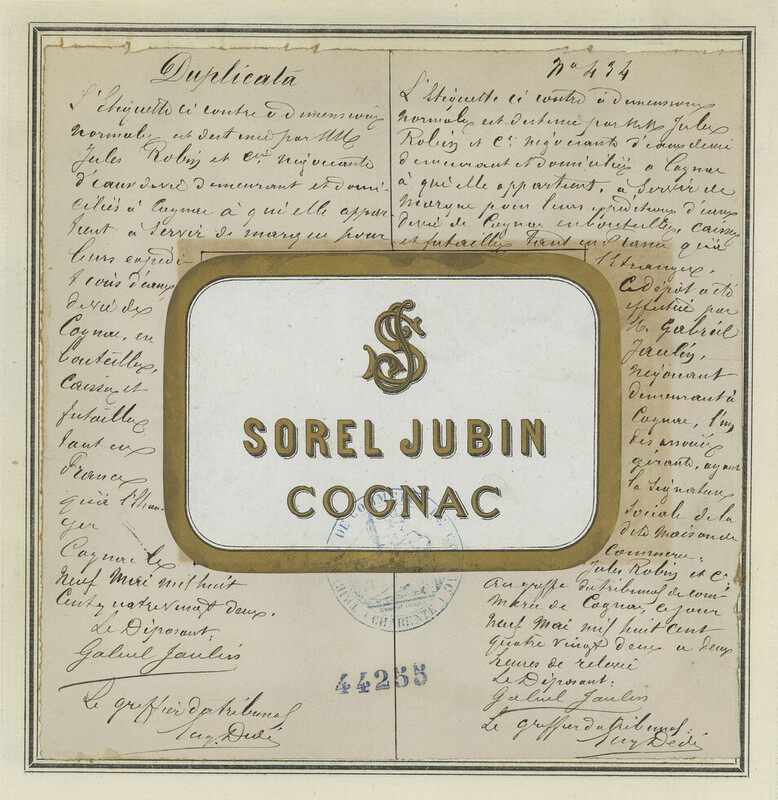 Duplicata
L'Etiquette ci contre à dimensions
normales est destinée par MM
Jules Robin et Cie négociants
d'eaux de vie demeurant et domi-
ciliés à Cognac à qui elle appar
tient à Servir de marque pour
leurs expédi-
tions d'eaux
de vie de
Cognac, en
bouteilles,
caisses et
futailles
tant en
France
qu'à l'Etran
ger
Cognac le
neuf Mai mil huit
cent quatre vingt deux.
Le Déposant:
Gabriel Jaulin
Le greffier du tribunal
Eug. Dedé
No 434
L'Etiquette ci contre à dimensions
normales est destinée par MM. Jules
Robin et Cie négociants d'eaux de vie
demeurant et domiciliés à Cognac
à qui elle appartient, à Servir de
Marque pour leurs expéditions d'eaux
de vie de Cognac en bouteilles, caisses
et futailles tant en France qu'à
l'Etranger.
Ce dépôt a été
effectué par
M. Gabriel
Jaulin,
négociant
demeurant à
Cognac, l'un
des associés
gérants, ayant
la Signature
Sociale de la
dite Maison de
Commerce:
Jules Robin et Cie
Au greffe du tribunal de com-
merce de Cognac, ce jour
neuf Mai mil huit cent
quatre vingt deux à deux
heures de relevée
Le Déposant:
Gabriel Jaulin
Le greffier du tribunal:
Eug Dedé
SJ
SOREL JUBIN
COGNAC
TRIB DE COMMERCE DE COGNAC
CHARENTE
44255